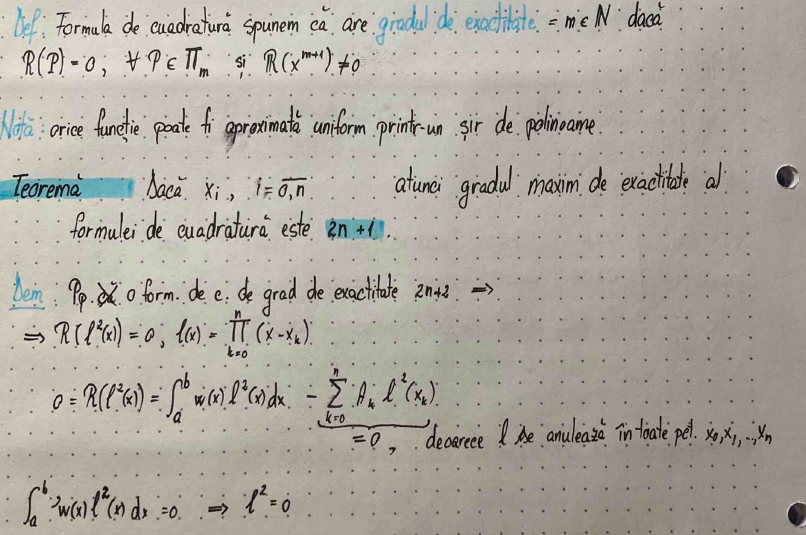 Def: Formula de cuadratură spunem că are gradul de exactitate = m ∈ ℕ dacă
R(P) = 0, ∀ P ∈ Π_m și R(x^{m+1}) ≠ 0
Notă: orice funcție poate fi aproximată uniform printr-un șir de polinoame.
Teoremă Dacă x_i, i = \overline{0,n} atunci gradul maxim de exactitate al
formulei de cuadratură este 2n+1.
Dem: Pp. o form. de c. de grad de exactitate 2n+2 ⇒
⇒ R(l²(x)) = 0, l(x) = ∏_{k=0}^{n} (x - x_k)
0 = R(l²(x)) = ∫_a^b w(x) l²(x) dx - ∑_{k=0}^{n} A_k l²(x_k)
= 0, deoarece l se anulează în toate pct. x_0, x_1, .., x_n
∫_a^b w(x) l²(x) dx = 0 ⇒ l² = 0